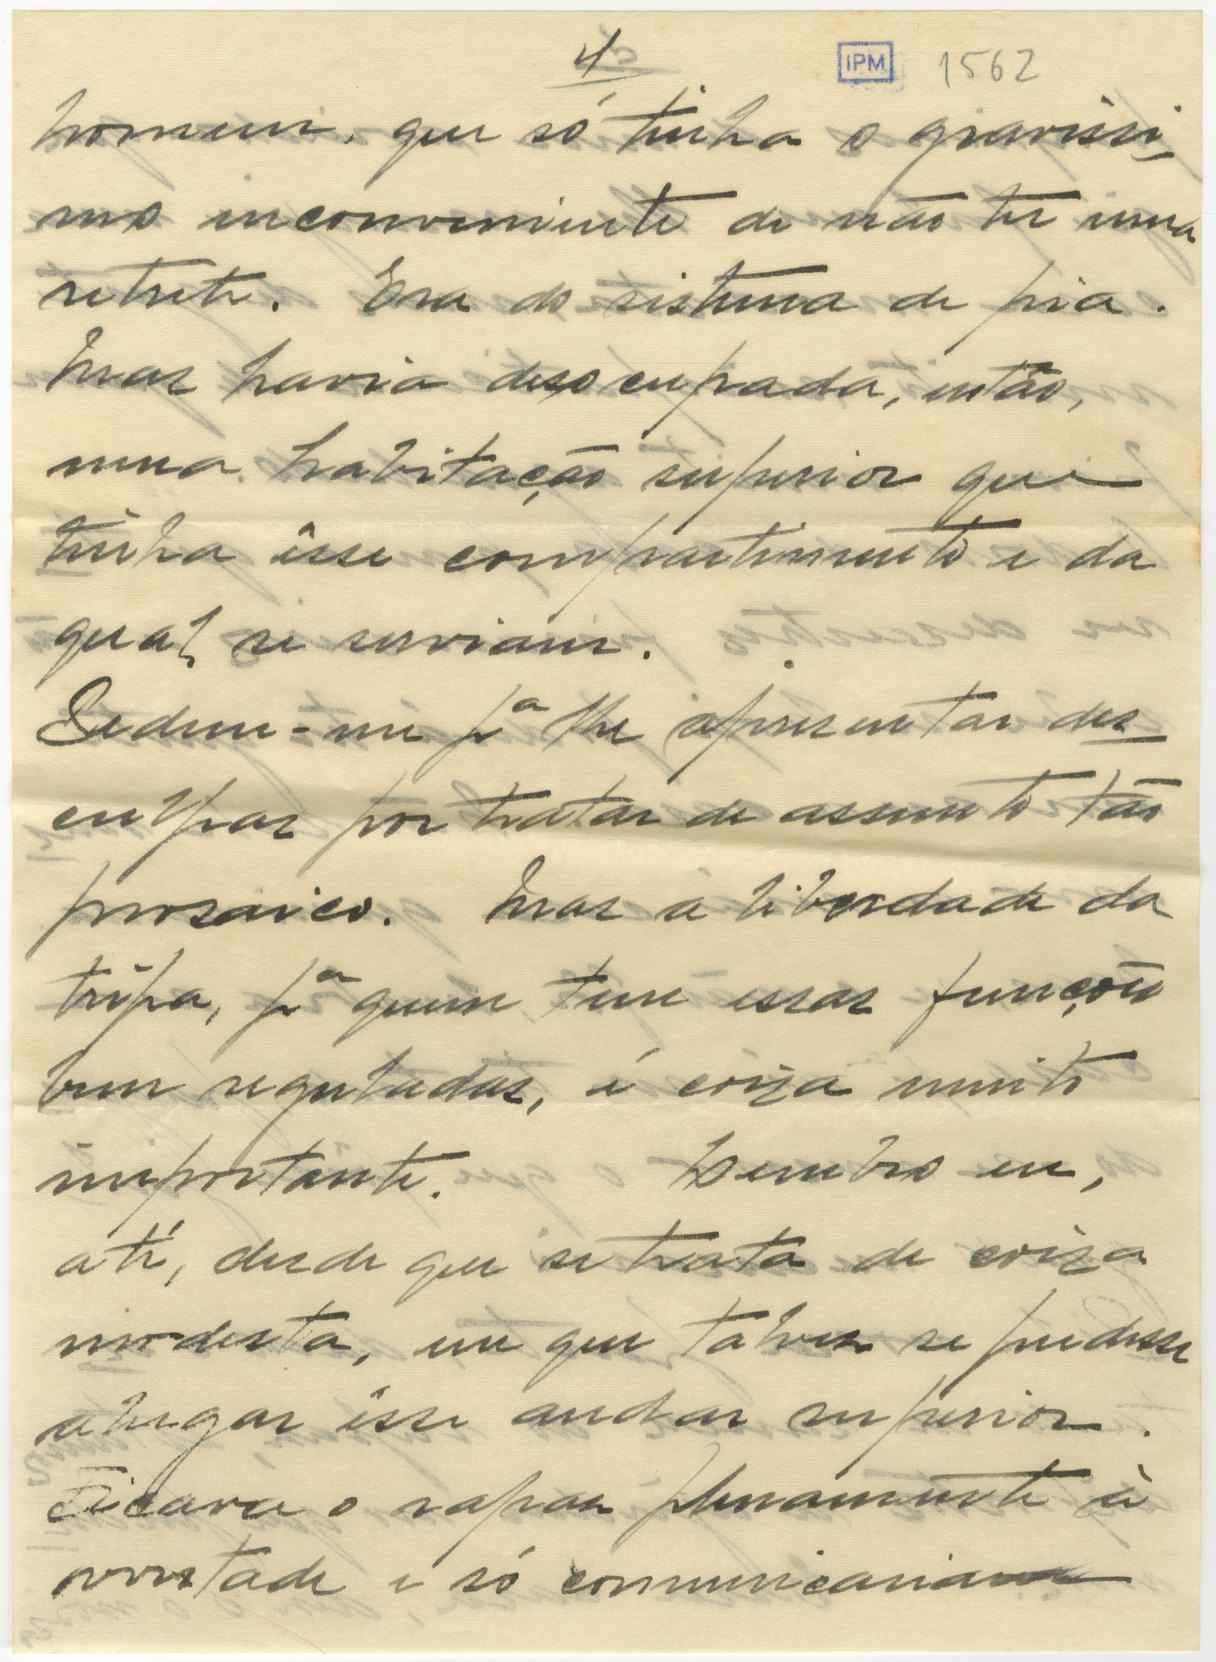 4
IPM 1562
homem, que só tinha o gravissi-
mo inconveniente de não ter uma
retrete. Era do sistema de pia.
Mas havia desocupada, então,
uma habitação superior que
tinha êsse compartimento e da
qual se serviam.
Pedem-me pª lhe apresentar des-
culpas por tratar de assunto tão
prosaico. Mas a liberdade da
tripa, pª quem tem essas funções
bem reguladas, é coiza muito
importante. Lembro eu,
até, desde que se trata de coiza
modesta, em que talvez se pudesse
alugar êsse andar superior.
Ficava o rapaz plenamente à
vontade e só comunicaria